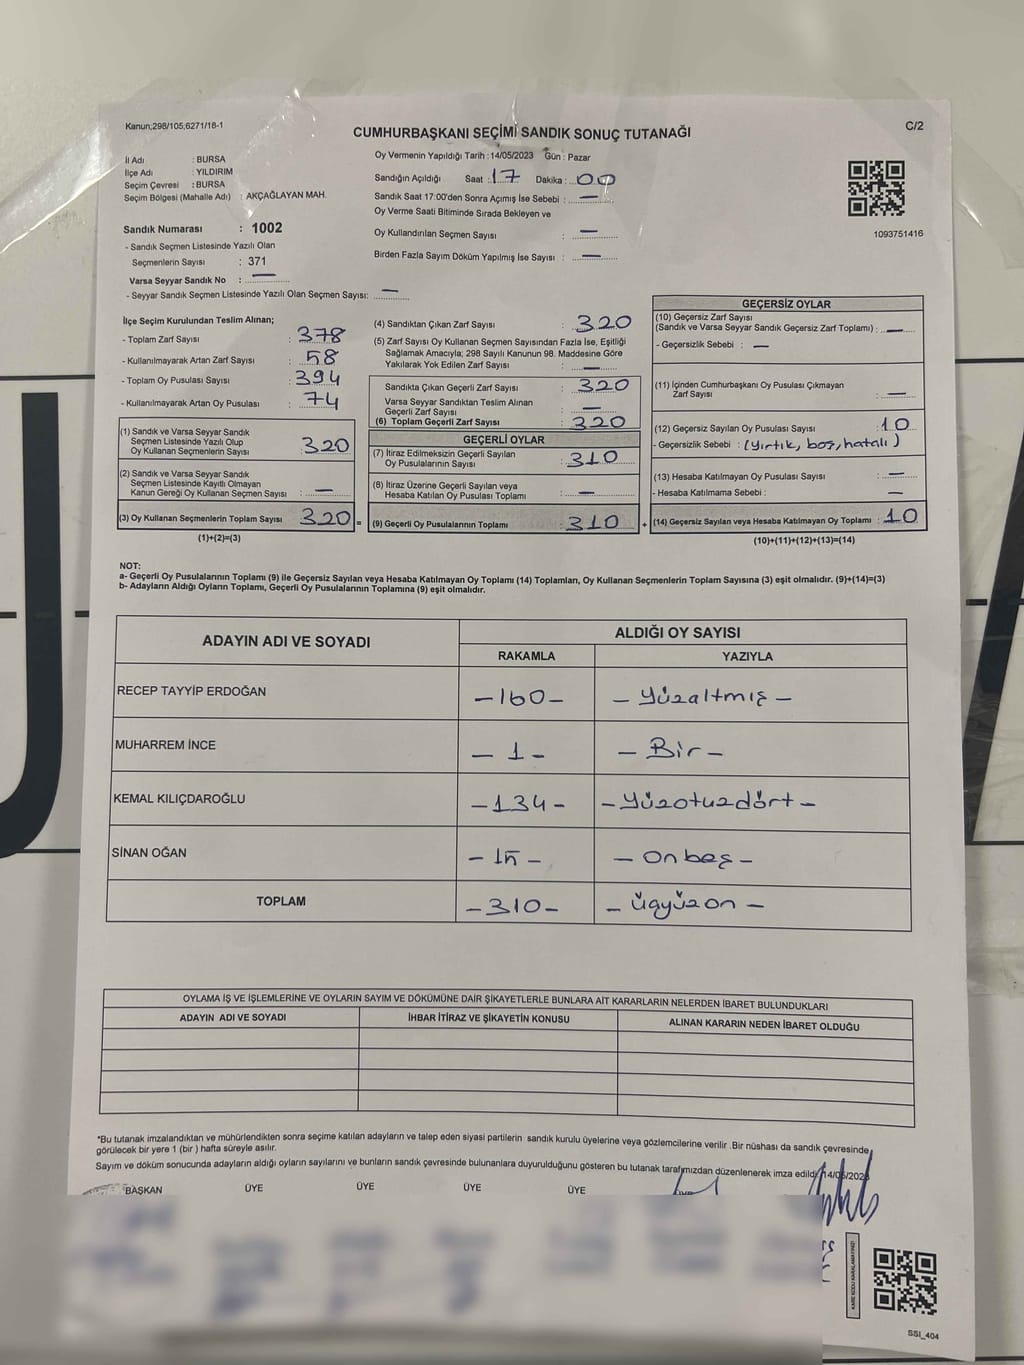 Kanun;298/105;6271/18-1
CUMHURBAŞKANI SEÇİMİ SANDIK SONUÇ TUTANAĞI
C/2
İl Adı : BURSA
İlçe Adı : YILDIRIM
Seçim Çevresi : BURSA
Seçim Bölgesi (Mahalle Adı) : AKÇAĞLAYAN MAH.
Oy Vermenin Yapıldığı Tarih : 14/05/2023 Gün : Pazar
Sandığın Açıldığı Saat : 17 Dakika : 00
Sandık Saat 17:00'den Sonra Açımış İse Sebebi : —
Oy Verme Saati Bitiminde Sırada Bekleyen ve
Oy Kullandırılan Seçmen Sayısı : —
Birden Fazla Sayım Döküm Yapılmış İse Sayısı : —
1093751416
Sandık Numarası : 1002
- Sandık Seçmen Listesinde Yazılı Olan
Seçmenlerin Sayısı : 371
Varsa Seyyar Sandık No : —
- Seyyar Sandık Seçmen Listesinde Yazılı Olan Seçmen Sayısı: —
İlçe Seçim Kurulundan Teslim Alınan;
- Toplam Zarf Sayısı : 378
- Kullanılmayarak Artan Zarf Sayısı : 58
- Toplam Oy Pusulası Sayısı : 394
- Kullanılmayarak Artan Oy Pusulası : 74
(1) Sandık ve Varsa Seyyar Sandık
Seçmen Listesinde Yazılı Olup
Oy Kullanan Seçmenlerin Sayısı : 320
(2) Sandık ve Varsa Seyyar Sandık
Seçmen Listesinde Kayıtlı Olmayan
Kanun Gereği Oy Kullanan Seçmen Sayısı : —
(3) Oy Kullanan Seçmenlerin Toplam Sayısı 320 =
(1)+(2)=(3)
(4) Sandıktan Çıkan Zarf Sayısı : 320
(5) Zarf Sayısı Oy Kullanan Seçmen Sayısından Fazla İse, Eşitliği
Sağlamak Amacıyla; 298 Sayılı Kanunun 98. Maddesine Göre
Yakılarak Yok Edilen Zarf Sayısı : —
Sandıkta Çıkan Geçerli Zarf Sayısı : 320
Varsa Seyyar Sandıktan Teslim Alınan
Geçerli Zarf Sayısı : —
(6) Toplam Geçerli Zarf Sayısı : 320
GEÇERLİ OYLAR
(7) İtiraz Edilmeksizin Geçerli Sayılan
Oy Pusulalarının Sayısı : 310
(8) İtiraz Üzerine Geçerli Sayılan veya
Hesaba Katılan Oy Pusulası Toplamı : —
(9) Geçerli Oy Pusulalarının Toplamı : 310 +
GEÇERSİZ OYLAR
(10) Geçersiz Zarf Sayısı
(Sandık ve Varsa Seyyar Sandık Geçersiz Zarf Toplamı) : —
- Geçersizlik Sebebi : —
(11) İçinden Cumhurbaşkanı Oy Pusulası Çıkmayan
Zarf Sayısı : —
(12) Geçersiz Sayılan Oy Pusulası Sayısı : 10
- Geçersizlik Sebebi : (yırtık, boş, hatalı)
(13) Hesaba Katılmayan Oy Pusulası Sayısı : —
- Hesaba Katılmama Sebebi : —
(14) Geçersiz Sayılan veya Hesaba Katılmayan Oy Toplamı : 10
(10)+(11)+(12)+(13)=(14)
NOT:
a- Geçerli Oy Pusulalarının Toplamı (9) ile Geçersiz Sayılan veya Hesaba Katılmayan Oy Toplamı (14) Toplamları, Oy Kullanan Seçmenlerin Toplam Sayısına (3) eşit olmalıdır. (9)+(14)=(3)
b- Adayların Aldığı Oyların Toplamı, Geçerli Oy Pusulalarının Toplamına (9) eşit olmalıdır.
ADAYIN ADI VE SOYADI
ALDIĞI OY SAYISI
RAKAMLA YAZIYLA
RECEP TAYYİP ERDOĞAN —160— — Yüzaltmış —
MUHARREM İNCE — 1 — — Bir —
KEMAL KILIÇDAROĞLU —134— —Yüzotuzdört—
SİNAN OĞAN — 15 — — On beş —
TOPLAM —310— — üçyüzon —
OYLAMA İŞ VE İŞLEMLERİNE VE OYLARIN SAYIM VE DÖKÜMÜNE DAİR ŞİKAYETLERLE BUNLARA AİT KARARLARIN NELERDEN İBARET BULUNDUKLARI
ADAYIN ADI VE SOYADI İHBAR İTİRAZ VE ŞİKAYETİN KONUSU ALINAN KARARIN NEDEN İBARET OLDUĞU
*Bu tutanak imzalandıktan ve mühürlendikten sonra seçime katılan adayların ve talep eden siyasi partilerin sandık kurulu üyelerine veya gözlemcilerine verilir .Bir nüshası da sandık çevresinde
görülecek bir yere 1 (bir) hafta süreyle asılır.
Sayım ve döküm sonucunda adayların aldığı oyların sayılarını ve bunların sandık çevresinde bulunanlara duyurulduğunu gösteren bu tutanak tarafımızdan düzenlenerek imza edildi. 14/05/2023
BAŞKAN ÜYE ÜYE ÜYE ÜYE
KARE KODU KARALAMAYINIZ!
SSI_404